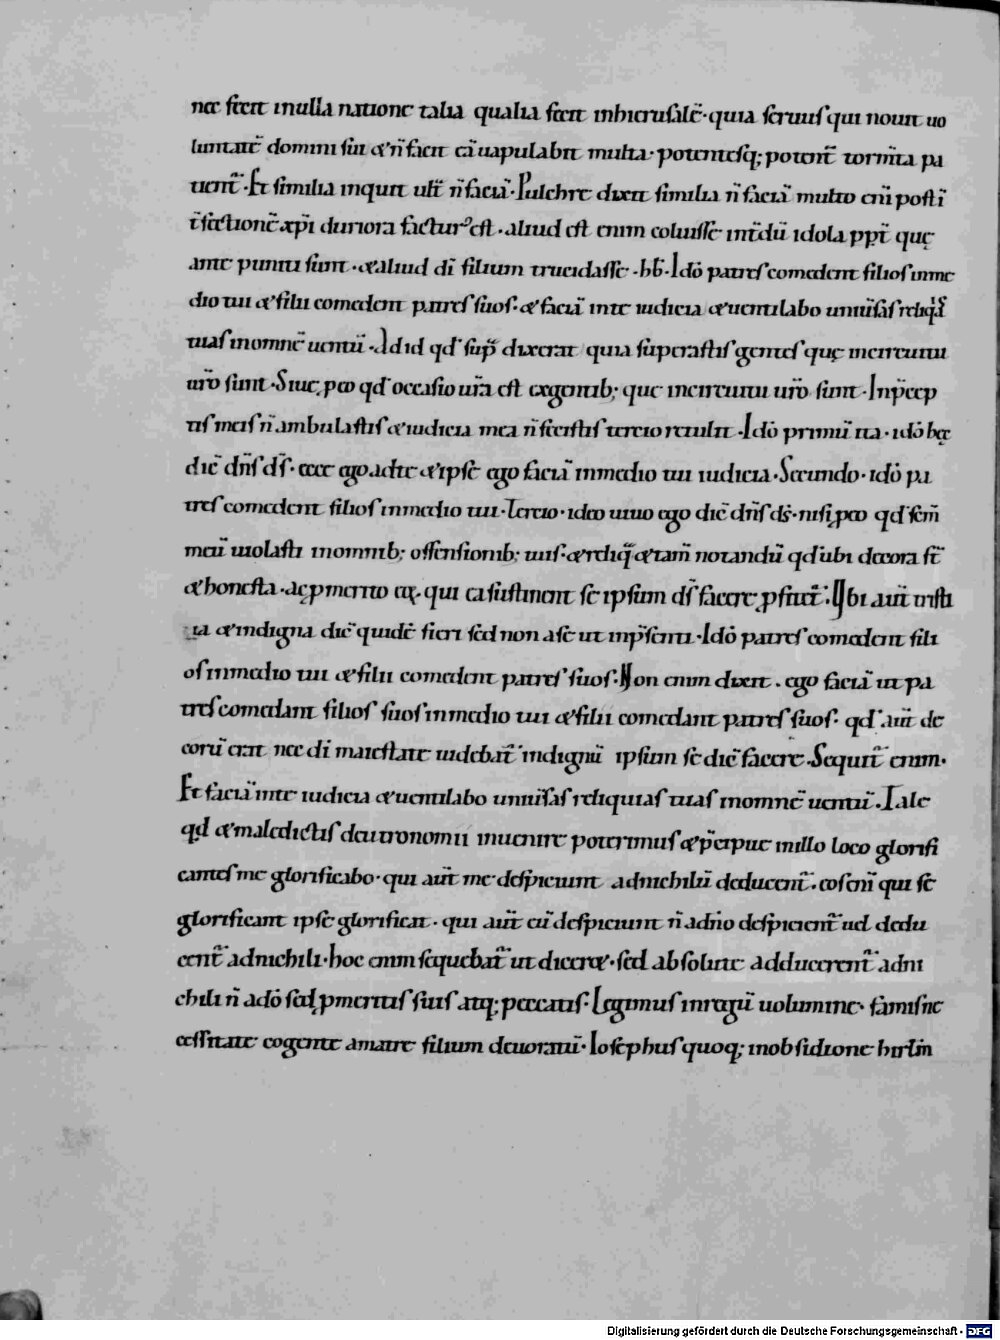 nec fecit inulla natione talia qualia fecit inhierusalē · quia seruus qui nouit uo
luntatē domini sui &ñ facit eā uapulabit multa · potentesq; potent̄ torm̄ta pa
tient̄ · Et similia inquit ult̄ ñ faciā · Pulchre dixit similia ñ faciā multo eni postī
t̄fectionē xp̄i duriora factur᾽ est · aliud est enim coluisse int̄dū idola pp̄t quę
ante puniti sunt · &aliud dī filium trucidasse · hb̄ · Idō patres comedent filios inme
dio tui &filii comedent patres suos · &faciā inte iudicia &uentilabo uniūsas reliq̄s
tuas inomnē uentū · Adid qd̄ sup̄ dixerat quia superastis gentes quę incircuitu
ur̄o sunt · Siue, ꝓeo qd̄ occasio ur̄a est exgentib; que incircuitu ur̄o sunt · Inp̄cep
tis meis ñ ambulastis &iudicia mea ñ fecistis tercio retulit · Idō primū ita · idō hęc
dic̄ dn̄s ds̄ · ecce ego adte &ipse ego faciā inmedio tui iudicia · Secundo · idō pa
tres comedent filios inmedio tui · Tercio · ideo uiuo ego dic̄ dn̄s ds̄ · nisi ꝓeo qd̄ sc̄m
meū uiolasti inomnib; offensionib; tuis · &reliq̄ &tam̄ notandū qd̄ ubi decora st̄
&honesta · ac ꝓmerito eꝝ · qui ea sustinent se ipsum ds̄ facere ꝓfitet̄ · Ubi aut̄ tristi
tia &indigna dic̄ quidē fieri sed non ase ut inp̄senti · Idō patres comedent fili
os inmedio tui &filii comedent patres suos · Non enim dixit · ego faciā ut pa
tres comedant filios suos inmedio tui &filii comedant patres suos · qd̄ aut̄ de
corū erat nec dī maiestate uidebat̄ indignū ipsum se dic̄ facere · Sequit̄ enim ·
Et faciā inte iudicia &uentilabo uniūsas reliquias tuas inomnē uentū · Tale
qd̄ &maledictis deutronomii inuenire poterimus &p̄cipue inillo loco glorifi
cantes me glorificabo · qui aut̄ me despiciunt adnichilū deducent̄ · eos enī qui se
glorificant ipse glorificat · qui aut̄ eū despiciunt ñ adn̄o despicient̄ uel dedu
cent̄ adnichili · hoc enim sequebat̄ ut dicer& · sed absolute adducerent̄ adni
chili ñ adō sed ꝓmeritis suis atq; peccatis · Legimus inregū uolumine · famis ne
cessitate cogente matre filium deuorari · Iosephus quoq; inobsidione hirlm̄
Digitalisierung gefördert durch die Deutsche Forschungsgemeinschaft - DFG